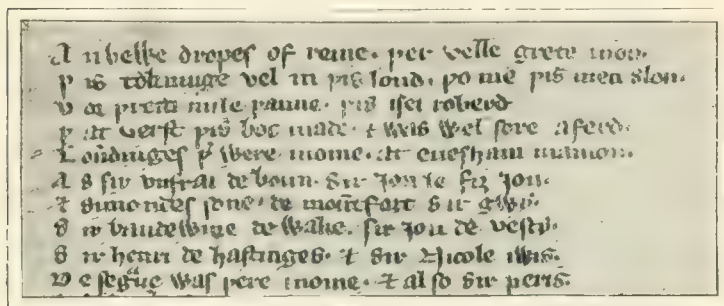 A uewe dropes of reine. þer velle grete inou.
Þis tokninge vel in þis lond. þo me þis men slou.
Vor þretti mile þanne. þis isei roberd
Þat verst þis boc made. ⁊ was wel sore aferd.
Louerdinges þer were inome. at euesham manion.
As sir vnfrai de boun. sir Jon le fiz Jon.
⁊ simondes sone. de mountfort sir gwy.
Sir baudewine de wake. sir Jon de vesey.
Sir henri de hastinges. ⁊ sir Nicole iwis.
De segᵃue was þere inome. ⁊ also sir peris.